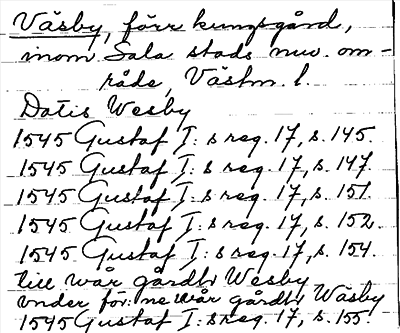 Väsby, förr kungsgård,
inom Sala stads nuv. om-
råde, Västm. l.
Datis Wesby
1545 Gustaf I: s reg. 17, s. 145.
1545 Gustaf I: s reg. 17, s. 147.
1545 Gustaf I: s reg. 17, s. 151.
1545 Gustaf I: s reg. 17, s. 152.
1545 Gustaf I: s reg. 17, s. 154.
till wår gårdh Wesby
vnder for: ne wår gårdh Wäsby
1545 Gustaf I: s reg. 17, s. 155.